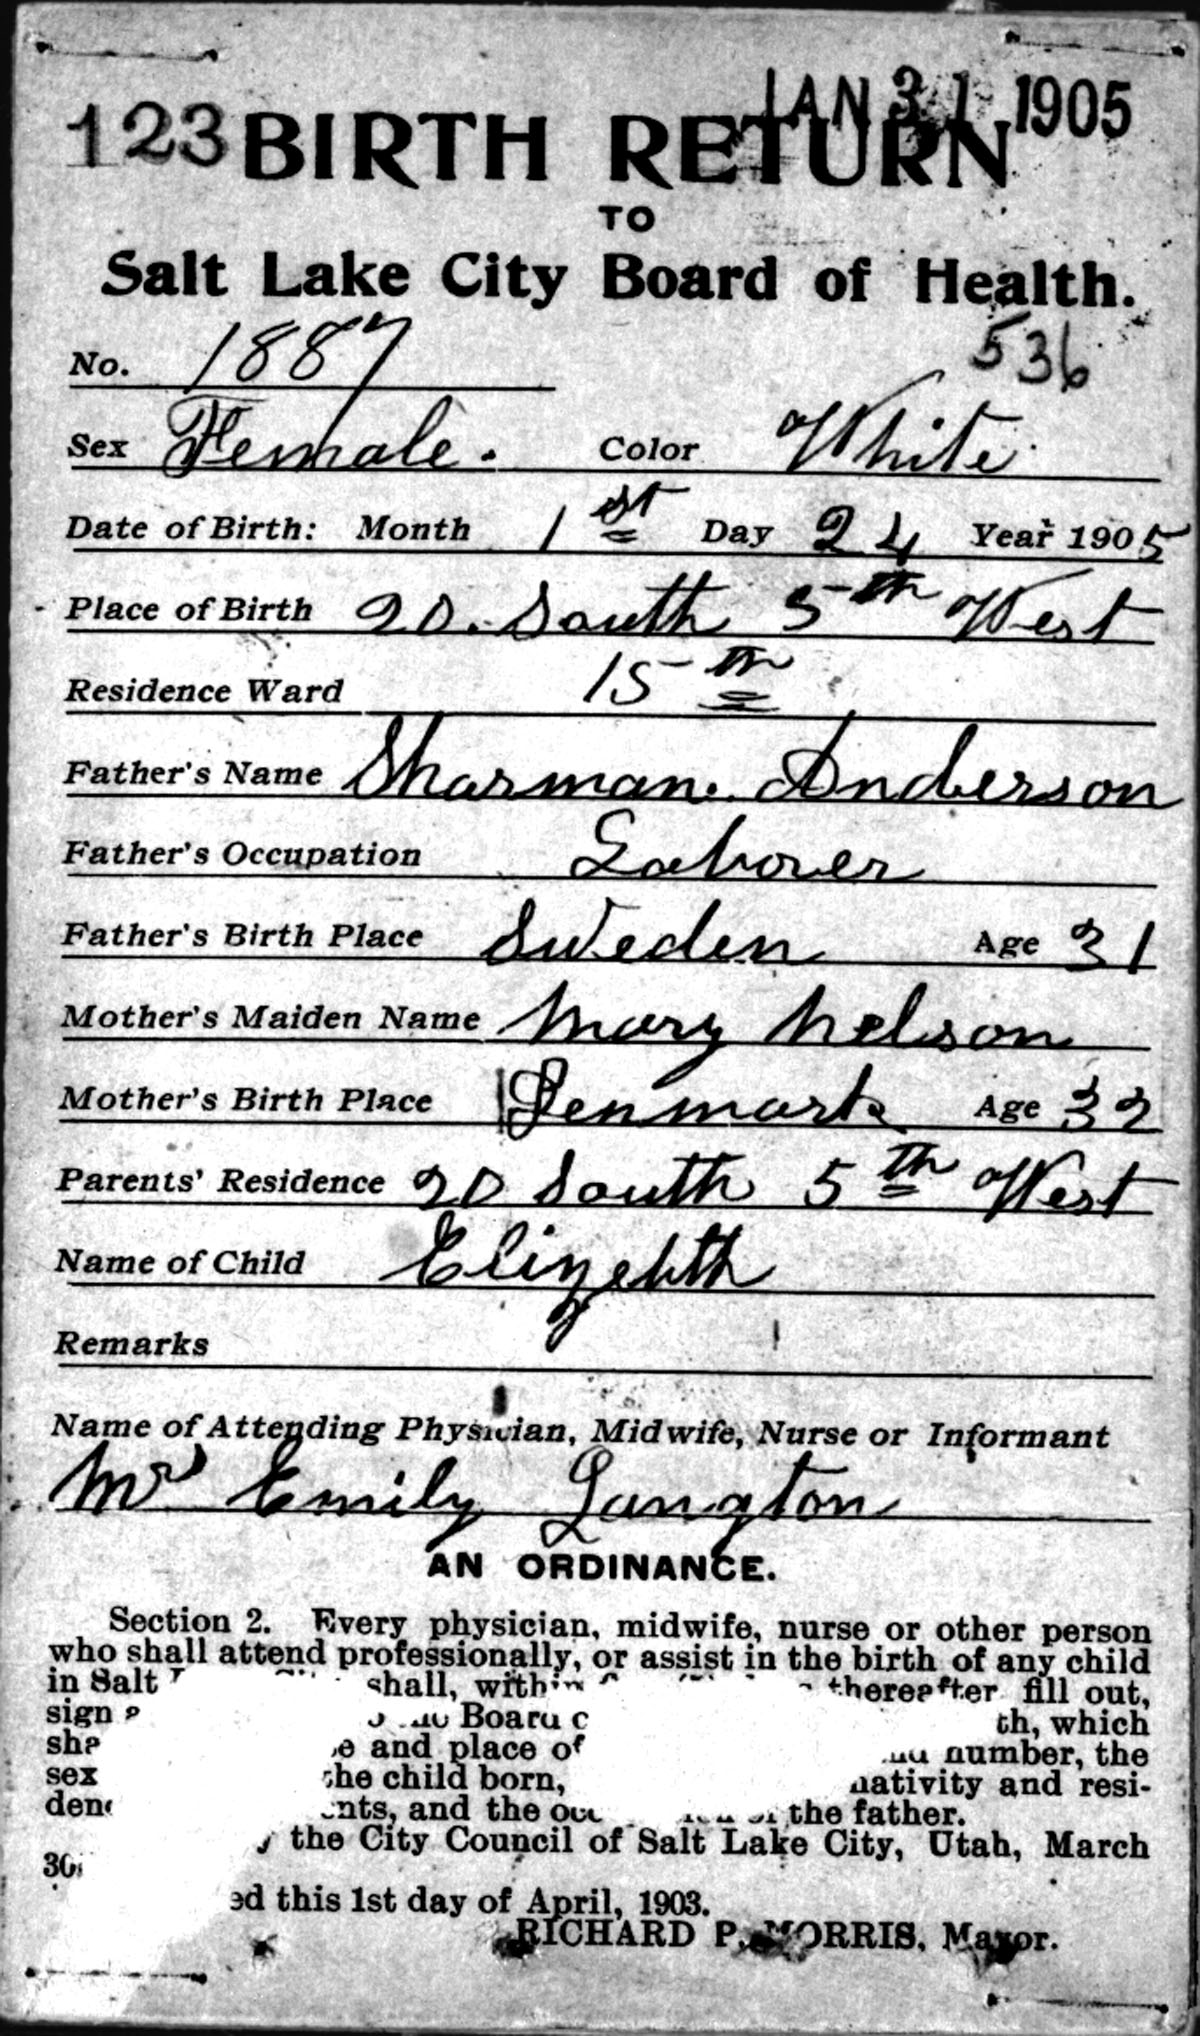 JAN 31 1905
123 BIRTH RETURN
TO
Salt Lake City Board of Health.
No. 1887 536
Sex Female. Color White
Date of Birth: Month 1st Day 24 Year 1905
Place of Birth 20. South 5th West
Residence Ward 15th
Father's Name Sharman. Anderson
Father's Occupation Laborer
Father's Birth Place Sweden Age 31
Mother's Maiden Name Mary Nelson
Mother's Birth Place Denmark Age 32
Parents' Residence 20 South 5th West
Name of Child Elizebth
Remarks
Name of Attending Physician, Midwife, Nurse or Informant
Mrs Emily Langton
AN ORDINANCE.
Section 2. Every physician, midwife, nurse or other person
who shall attend professionally, or assist in the birth of any child
in Salt shall, thereafter fill out,
sign Board which
and place of number, the
sex the child born, nativity and resi-
and the the father.
the City Council of Salt Lake City, Utah, March
30
this 1st day of April, 1903.
RICHARD P. MORRIS, Mayor.